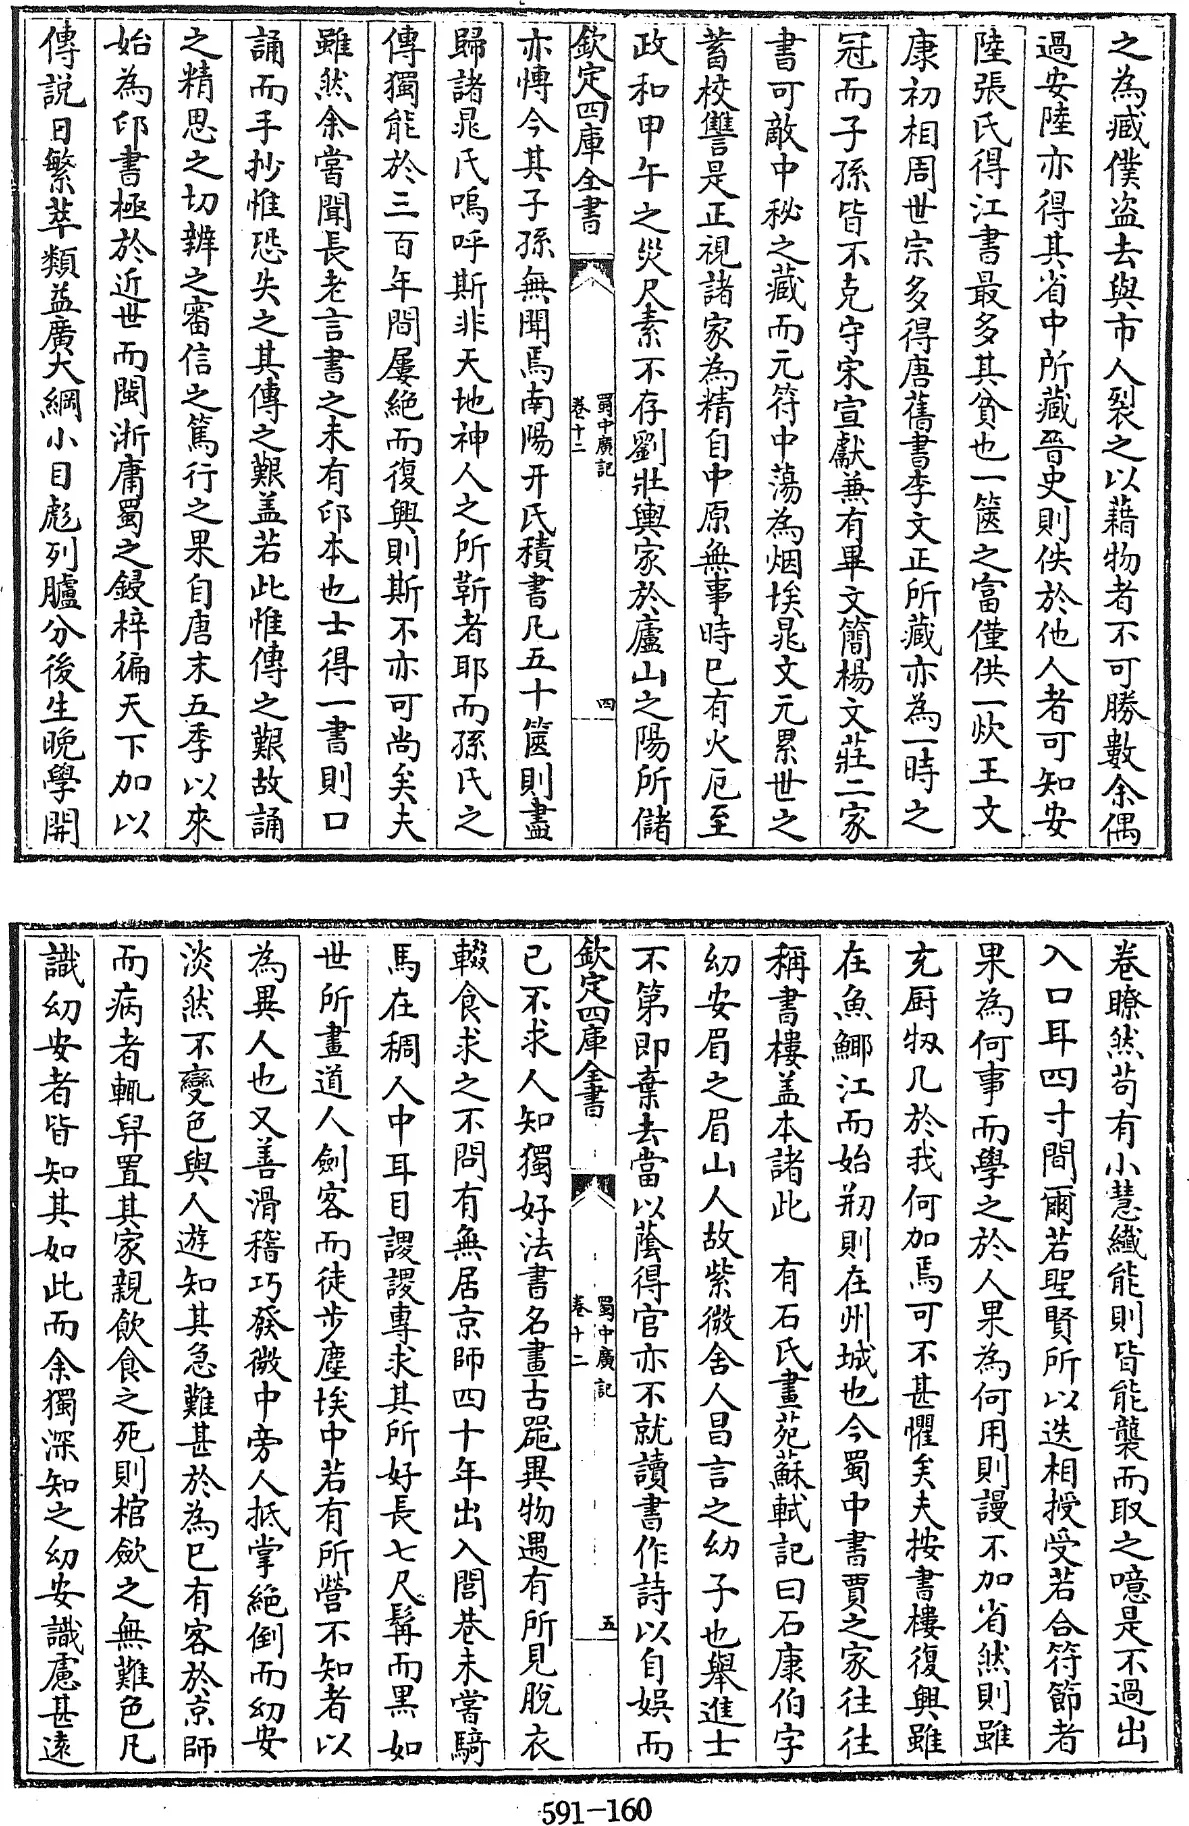 之為臧僕盜去與市人裂之以藉物者不可勝數余偶
過安陸亦得其省中所藏晉史則佚於他人者可知安
陸張氏得江書最多其貧也一篋之富僅供一炊王文
康初相周世宗多得唐舊書李文正所藏亦為一時之
冠而子孫皆不克守宋宣獻兼有畢文簡楊文莊二家
書可敵中秘之藏而元符中蕩為烟埃晁文元累世之
蓄校讐是正視諸家為精自中原無事時已有火厄至
政和甲午之災尺素不存劉壯輿家於廬山之陽所儲
欽定四庫全書
蜀中廣記
卷十二
四
亦慱今其子孫無聞焉南陽开氏積書凡五十篋則盡
歸諸晁氏嗚呼斯非天地神人之所靳者耶而孫氏之
傳獨能於三百年間屢絶而復興則斯不亦可尚矣夫
雖然余嘗聞長老言書之未有印本也士得一書則口
誦而手抄惟恐失之其傳之艱盖若此惟傳之艱故誦
之精思之切辨之審信之篤行之果自唐末五季以來
始為印書極於近世而閩浙庸蜀之鋟梓徧天下加以
傳説日繁萃類益廣大綱小目彪列臚分後生晚學開
卷瞭然苟有小慧纎能則皆能襲而取之噫是不過出
入口耳四寸間爾若聖賢所以迭相授受若合符節者
果為何事而學之於人果為何用則謾不加省然則雖
充厨牣几於我何加焉可不甚懼矣夫按書樓復興雖
在魚鯽江而始刱則在州城也今蜀中書賈之家往往
稱書樓盖本諸此　有石氏畫苑蘇軾記曰石康伯字
幼安眉之眉山人故紫微舍人昌言之幼子也舉進士
不第即棄去當以蔭得官亦不就讀書作詩以自娱而
欽定四庫全書
蜀中廣記
卷十二
五
已不求人知獨好法書名畫古器異物遇有所見脫衣
輟食求之不問有無居京師四十年出入閭巷未嘗騎
馬在稠人中耳目謖謖專求其所好長七尺髯而黑如
世所畫道人劍客而徒步塵埃中若有所營不知者以
為異人也又善滑稽巧發微中旁人抵掌絶倒而幼安
淡然不變色與人遊知其急難甚於為已有客於京師
而病者輒舁置其家親飲食之死則棺歛之無難色凡
識幼安者皆知其如此而余獨深知之幼安識慮甚遠
591-160